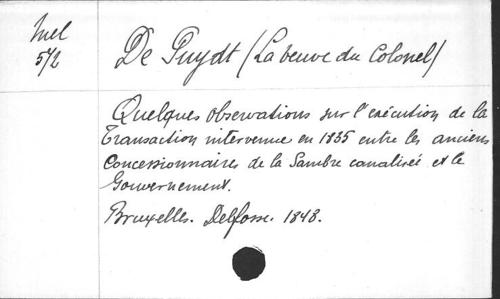 Mel
572
De Puydt (La veuve du Colonel)
Quelques observations sur l'exécution de la
Transaction intervenue en 1835 entre les anciens
Concessionnaires de la Sambre canalisée et le
Gouvernement.
Bruxelles. Delfosse. 1848.